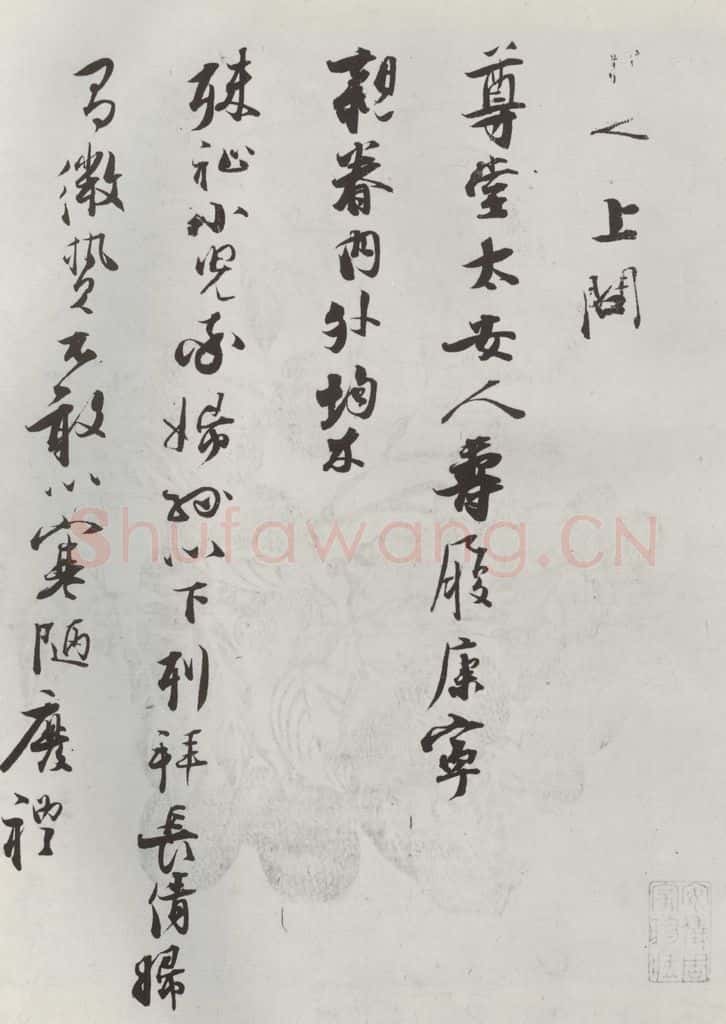 人上問
尊堂太安人尊履康寧
親眷內外均休
殊祉小兒婦以下列拜長倩婦
有微贄不敢以寒陋廢禮
Shufawang.CN